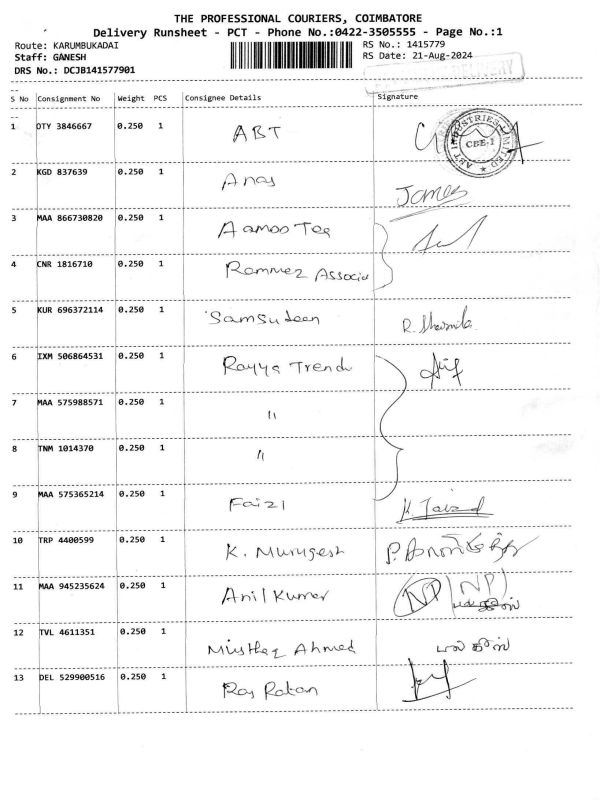 THE PROFESSIONAL COURIERS, COIMBATORE
Delivery Runsheet - PCT - Phone No.:0422-3505555 - Page No.:1
Route: KARUMBUKADAI RS No.: 1415779
Staff: GANESH RS Date: 21-Aug-2024
DRS No.: DCJB141577901 DELIVERY
S No Consignment No Weight PCS Consignee Details Signature
1 OTY 3846667 0.250 1 ABT ABT INDUSTRIES LIMITED CBE-1
2 KGD 837639 0.250 1 Anas James
3 MAA 866730820 0.250 1 Aamoo Tea
4 CNR 1816710 0.250 1 Rammez Associa
5 KUR 696372114 0.250 1 Samsudeen R. Sharmila
6 IXM 506864531 0.250 1 Rayya Trends
7 MAA 575988571 0.250 1 "
8 TNM 1014370 0.250 1 "
9 MAA 575365214 0.250 1 Faizl K. Faizal
10 TRP 4400599 0.250 1 K. Murugesh
11 MAA 945235624 0.250 1 Anil Kumar NP NP
12 TVL 4611351 0.250 1 Musthaq Ahmed
13 DEL 529900516 0.250 1 Raj Ratan